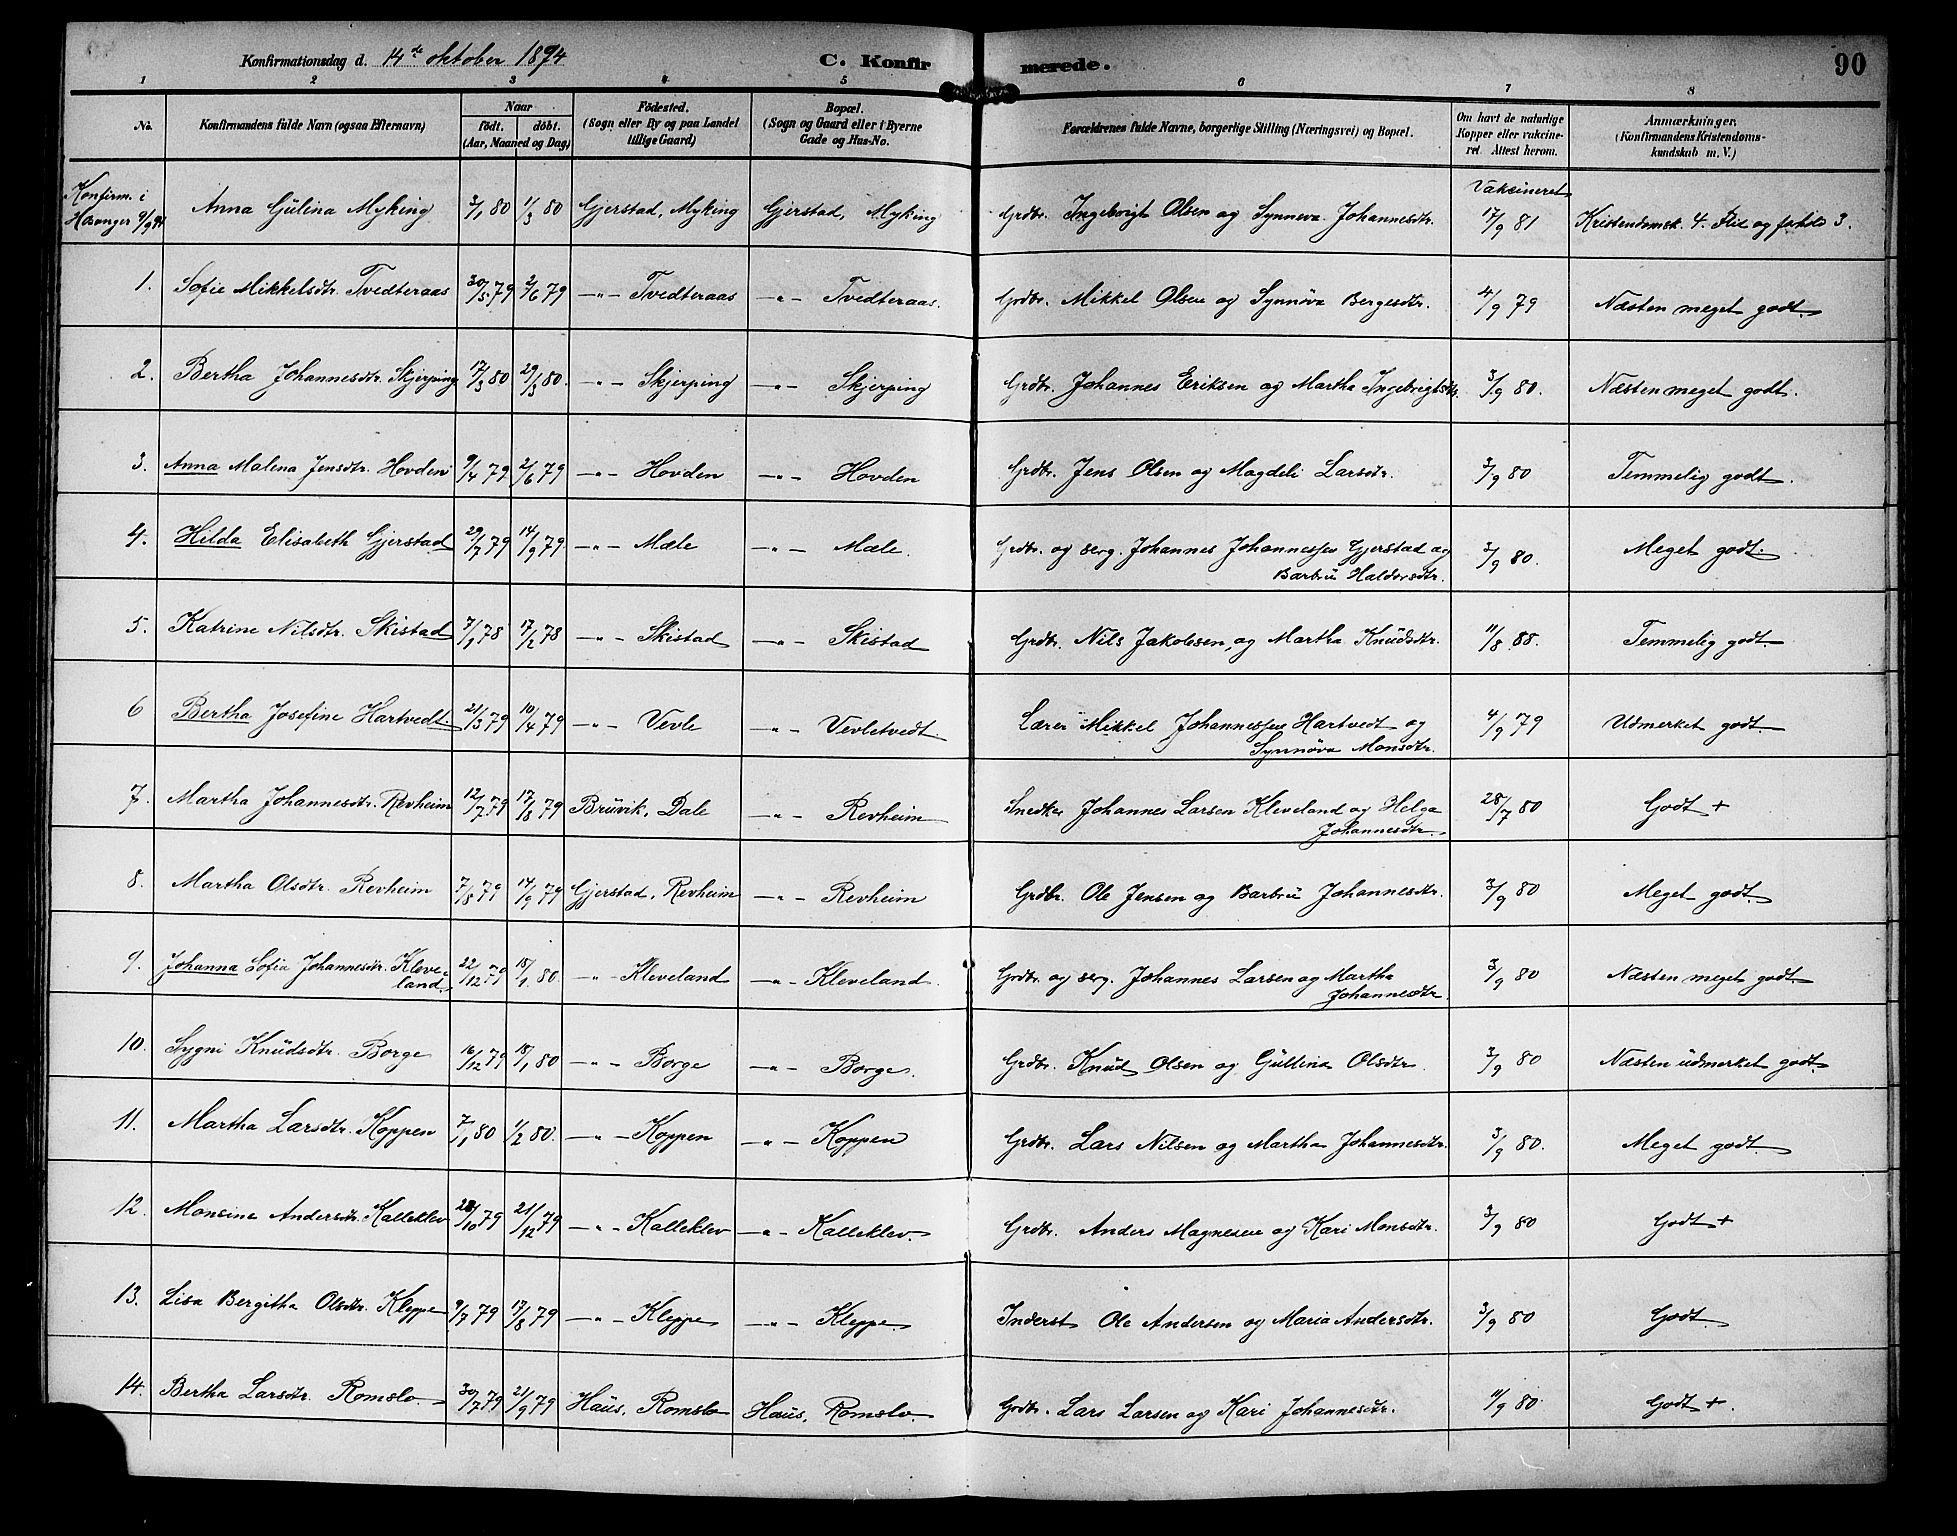 Konfirmationsdag d. 14de oktober 1894 C. Konfirmerede. 90
1 2 3 4 5 6 7 8
No. Konfirmandens fulde Navn (ogsaa Efternavn) Naar födt. döbt. (Aar, Maaned og Dag) Födested. (Sogn eller By og paa Landet tillige Gaard) Bopæl. (Sogn og Gaard eller i Byerne Gade og Hus-No. Forældrenes fulde Navne, borgerlige Stilling (Næringsvei) og Bopæl. Om havt de naturlige Kopper eller vakcineret. Attest herom. Anmærkninger. (Konfirmandens Kristendomskundskab m. V.)
Konfirm. i Hosanger 9/9 94 Anna Gulina Myking 3/1 80 1/3 80 Gjerstad, Myking Gjerstad, Myking Grdbr. Ingebrigt Olsen og Synneva Johannesdtr. Vakcineret 17/9 81 Kristendomsk. 4. Flid og forhold 3.
1. Sofie Mikkelsdtr. Tvedteraas 30/5 79 2/6 79 —„— Tvedteraas —„— Tvedteraas. Grdbr. Mikkel Olsen og Synnöva Bergesdtr. 4/9 79 Næsten meget godt.
2. Bertha Johannesdtr. Skjerping 17/3 80 29/3 80. —„— Skjerping —„— Skjerping Grdbr. Johannes Eriksen og Martha Ingebrigtsdtr. 3/9 80. Næsten meget godt.
3. Anna Malena Jensdtr. Hovden 9/4 79 2/6 79 —„— Hovden —„— Hovden Grdbr. Jens Olsen og Magdeli Larsdtr. 3/9 80 Temmelig godt.
4. Hilda Elisabeth Gjerstad 29/7 79 14/9 79 —„— Mæle —„— Mæle. Grdbr. og serg. Johannes Johannessen Gjerstad og Barbru Haldorsdtr. 3/9 80. Meget godt.
5. Katrine Nilsdtr. Skistad 7/1 78 17/2 78 —„— Skistad —„— Skistad Grdbr. Nils Jakobsen, og Martha Knudsdtr. 11/8 88. Temmelig godt.
6 Bertha Josefine Hartvedt. 21/3 79 10/4 79 —„— Vevle —„— Vevletvedt. Lærer Mikkel Johannessen Hartvedt og Synnöva Monsdtr. 4/9 79 Udmerket godt
7. Martha Johannesdtr. Revheim 12/7 79 17/8 79 Bruvik, Dale —„— Revheim Snedker Johannes Larsen Kleveland og Helga Johannesdtr. 28/7 80 Godt +
8. Martha Olsdtr. Revheim 7/8 79 14/9 79 Gjerstad, Revheim —„— Revheim Grdbr. Ole Jensen og Barbru Johannesdtr. 3/9 80 Meget godt.
9. Johanna Sofia Johannesdtr. Kleveland. 22/12 79 18/1 80. —„— Kleveland —„— Kleveland. Grdbr. og serg. Johannes Larsen og Martha Johannesdtr. 3/9 80 Næsten meget godt.
10. Sygni Knudsdtr. Borge 16/12 79 18/1 80 —„— Borge —„— Borge. Grdbr. Knud Olsen og Gullina Olsdtr. 3/9 80 Næsten udmerket godt.
11. Martha Larsdtr. Koppen 7/1 80 1/2 80. —„— Koppen —„— Koppen Grdbr. Lars Nilsen og Martha Johannesdtr. 3/9 80. Meget godt.
12. Monsine Andersdtr. Kalleklev 28/10 79 21/12 79 —„— Kalleklev —„— Kalleklev. Grdbr. Anders Magnesen og Kari Monsdtr. 3/9 80 Godt +
13. Lisa Bergitha Olsdtr. Kleppe 9/7 79 17/8 79 —„— Kleppe —„— Kleppe. Inderst Ole Andersen og Maria Andersdtr. 3/9 80 Godt.
14. Bertha Larsdtr. Romslo. 30/7 79 21/9 79 Haus, Romslo Haus, Romslo. Grdbr. Lars Larsen og Kari Johannesdtr. 11/9 80. Godt +.